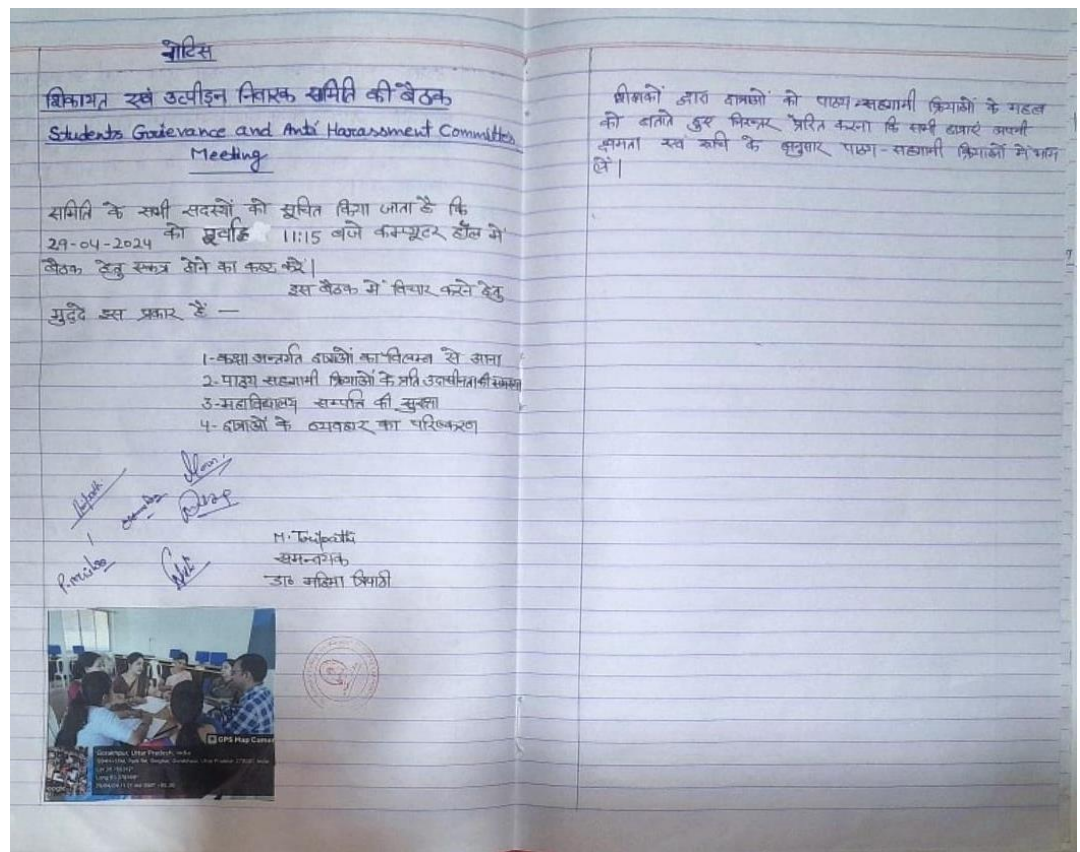 नोटिस
शिकायत एवं उत्पीड़न निवारक समिति की बैठक
Students Grievance and Anti Harassment Committee
Meeting
समिति के सभी सदस्यों को सूचित किया जाता है कि
29-04-2024 को पूर्वाह्न 11:15 बजे कम्प्यूटर हॉल में
बैठक हेतु एकत्र होने का कष्ट करें।
इस बैठक में विचार करने हेतु
मुद्दे इस प्रकार हैं —
1-कक्षा अन्तर्गत छात्राओं का विलम्ब से आना
2-पाठ्य सहगामी क्रियाओं के प्रति उदासीनता की समस्या
3-महाविद्यालय सम्पत्ति की सुरक्षा
4-छात्राओं के व्यवहार का परिष्करण
M. Tripathi
समन्वयक
डा० महिमा त्रिपाठी
GPS Map Camera
Gorakhpur, Uttar Pradesh, India
शिक्षकों द्वारा छात्राओं को पाठ्य-सहगामी क्रियाओं के महत्व
को बताते हुए निरन्तर प्रेरित करना कि सभी छात्राएं अपनी
क्षमता एवं रूचि के अनुसार पाठ्य-सहगामी क्रियाओं में भाग
लें।